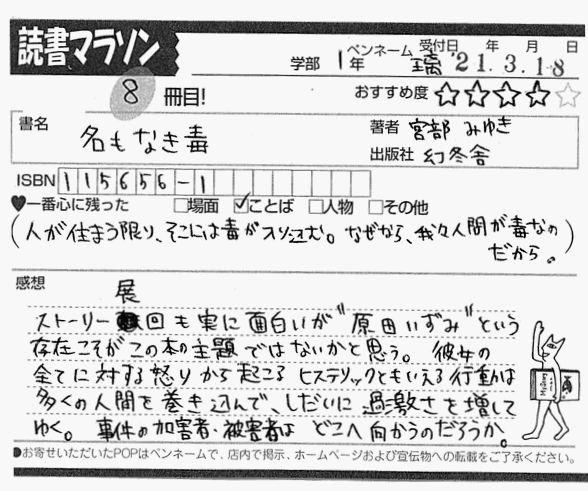 読書マラソン
学部 1年 ペンネーム 璃 受付日 '21年3月18日
8冊目! おすすめ度 ☆☆☆☆☆
書名 名もなき毒
著者 宮部 みゆき
出版社 幻冬舎
ISBN 115656-1
♥一番心に残った □場面 ☑ことば □人物 □その他
(人が住まう限り、そこには毒が入り込む。なぜなら、我々人間が毒なの
だから。)
感想
展
ストーリー回も実に面白いが"原田いずみ"という
存在こそがこの本の主題ではないかと思う。彼女の
全てに対する怒りから起こるヒステリックともいえる行動は
多くの人間を巻き込んで、しだいに過激さを増して
ゆく。事件の加害者・被害者はどこへ向かうのだろうか。
お寄せいただいたPOPはペンネームで、店内で掲示、ホームページおよび宣伝物への転載をご了承ください。